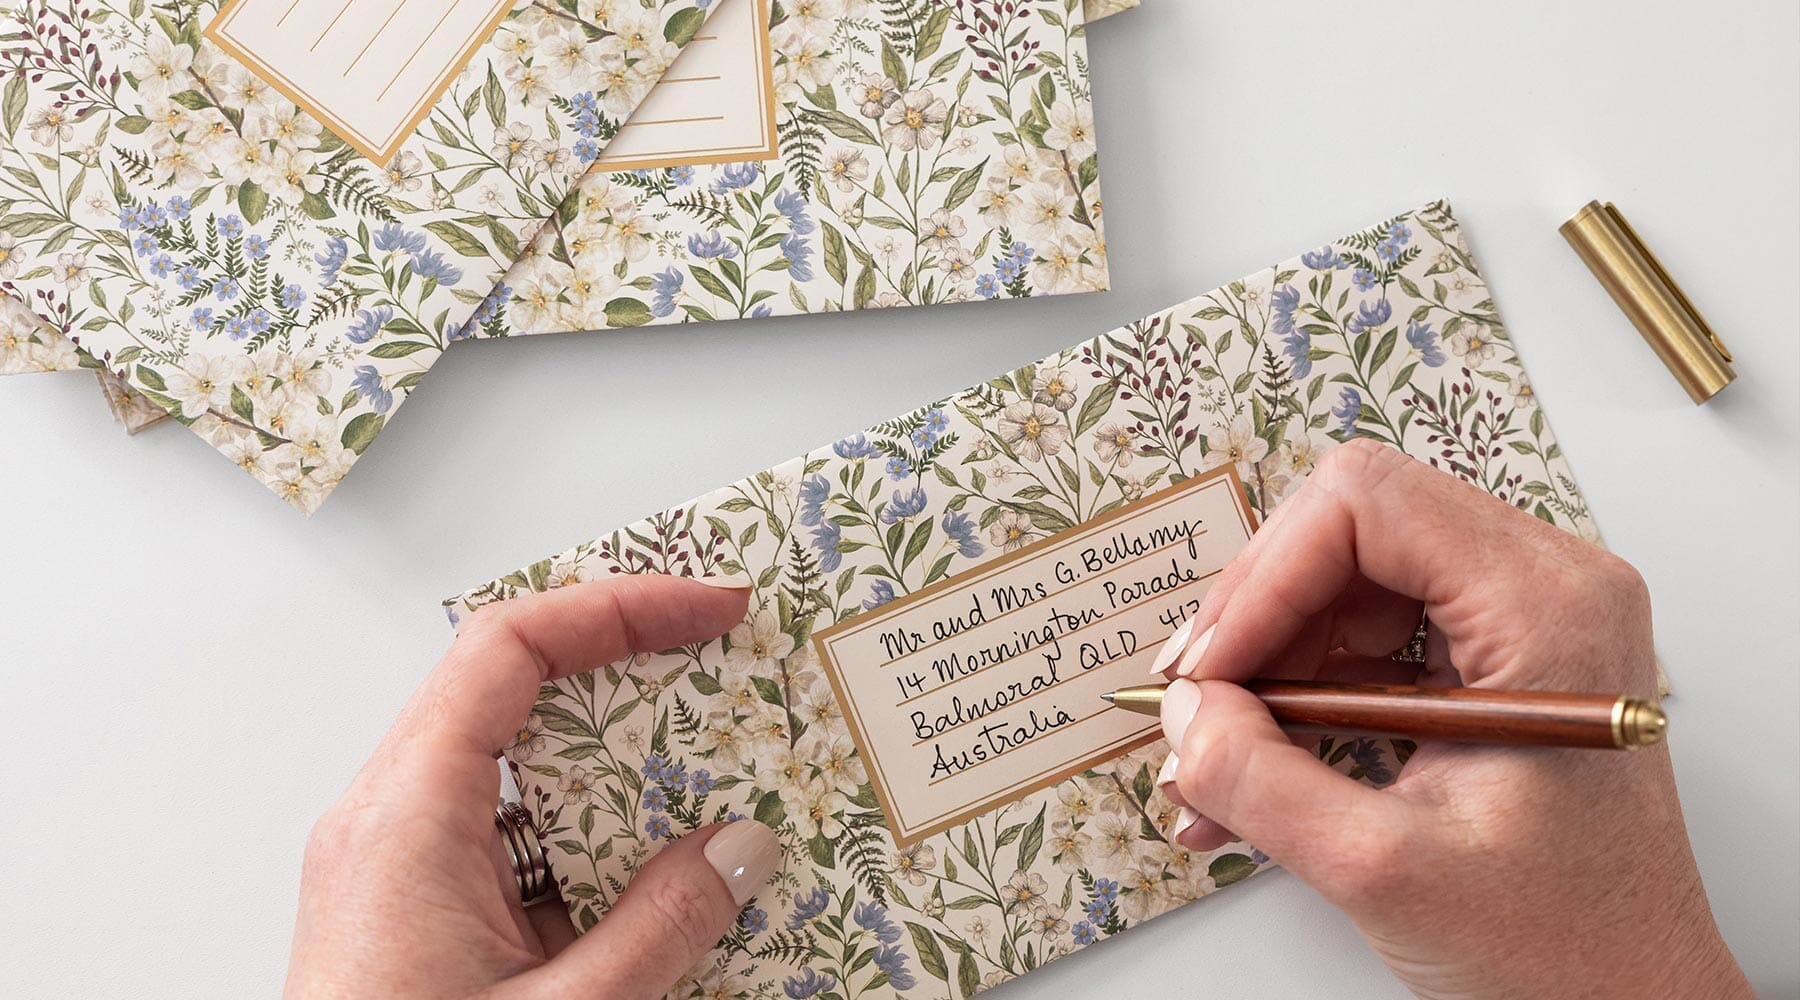 Mr and Mrs G. Bellamy
14 Mornington Parade
Balmoral QLD
Australia